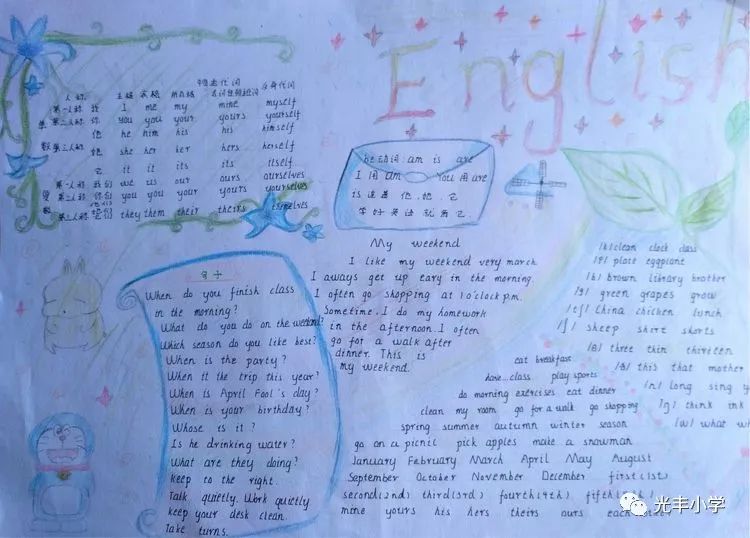 English
形容词性 名词性物主代词 反身代词
人称 主格 宾格 物主代词
第一人称 我 I me my mine myself
单 第二人称 你 you you your yours yourself
他 he him his his himself
数 第三人称 她 she her her hers herself
它 it it its its itself
第一人称 我们 we us our ours ourselves
复 第二人称 你们 you you your yours yourselves
数 第三人称 他们 they them their theirs themselves
be动词: am is are
I 用 am You 用 are
is 连着 他, 她, 它
学好英语就靠它
My weekend
I like my weekend very march.
I aways get up eary in the morning.
I often go shopping at 1 o'clock p.m.
Sometime. I do my homework
in the afternoon. I often
go for a walk after
dinner. This is
my weekend.
句子
When do you finish class
in the morning?
What do you do on the weekend?
Which season do you like best?
When is the party?
When it the trip this year?
When is April Fool's day?
When is your birthday?
Whose is it?
Is he drinking water?
What are they doing?
keep to the right.
Talk quietly. Work quietly
keep your desk clean.
Take turns.
/k/ clean clock class
/pl/ plate eggplant
/b/ brown library brother
/g/ green grapes grow
/tʃ/ China chicken lunch
/ʃ/ sheep shirt shorts
/θ/ three thin thirteen
/ð/ this that mother
/ŋ/ long sing
/ŋ/ think ink
/w/ what
eat breakfast
have...class play sports
do morning exercises eat dinner
clean my room go for a walk go shopping
spring summer autumn winter season
go on a picnic pick apples make a snowman
January February March April May August
September October November December first (1st)
second (2nd) third (3rd) fourth (4th) fifth
mine yours his hers theirs ours each other
光丰小学